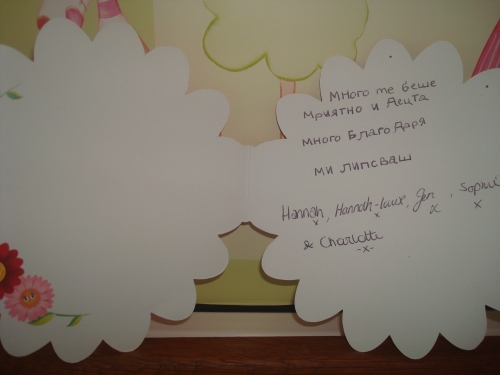 Много те беше
Мриятно и Децта
много Благо Даря
ми липсваш
Hannah, Hannah-Luux, Jen, Sophie
x x x x
& Charlotte
-x-